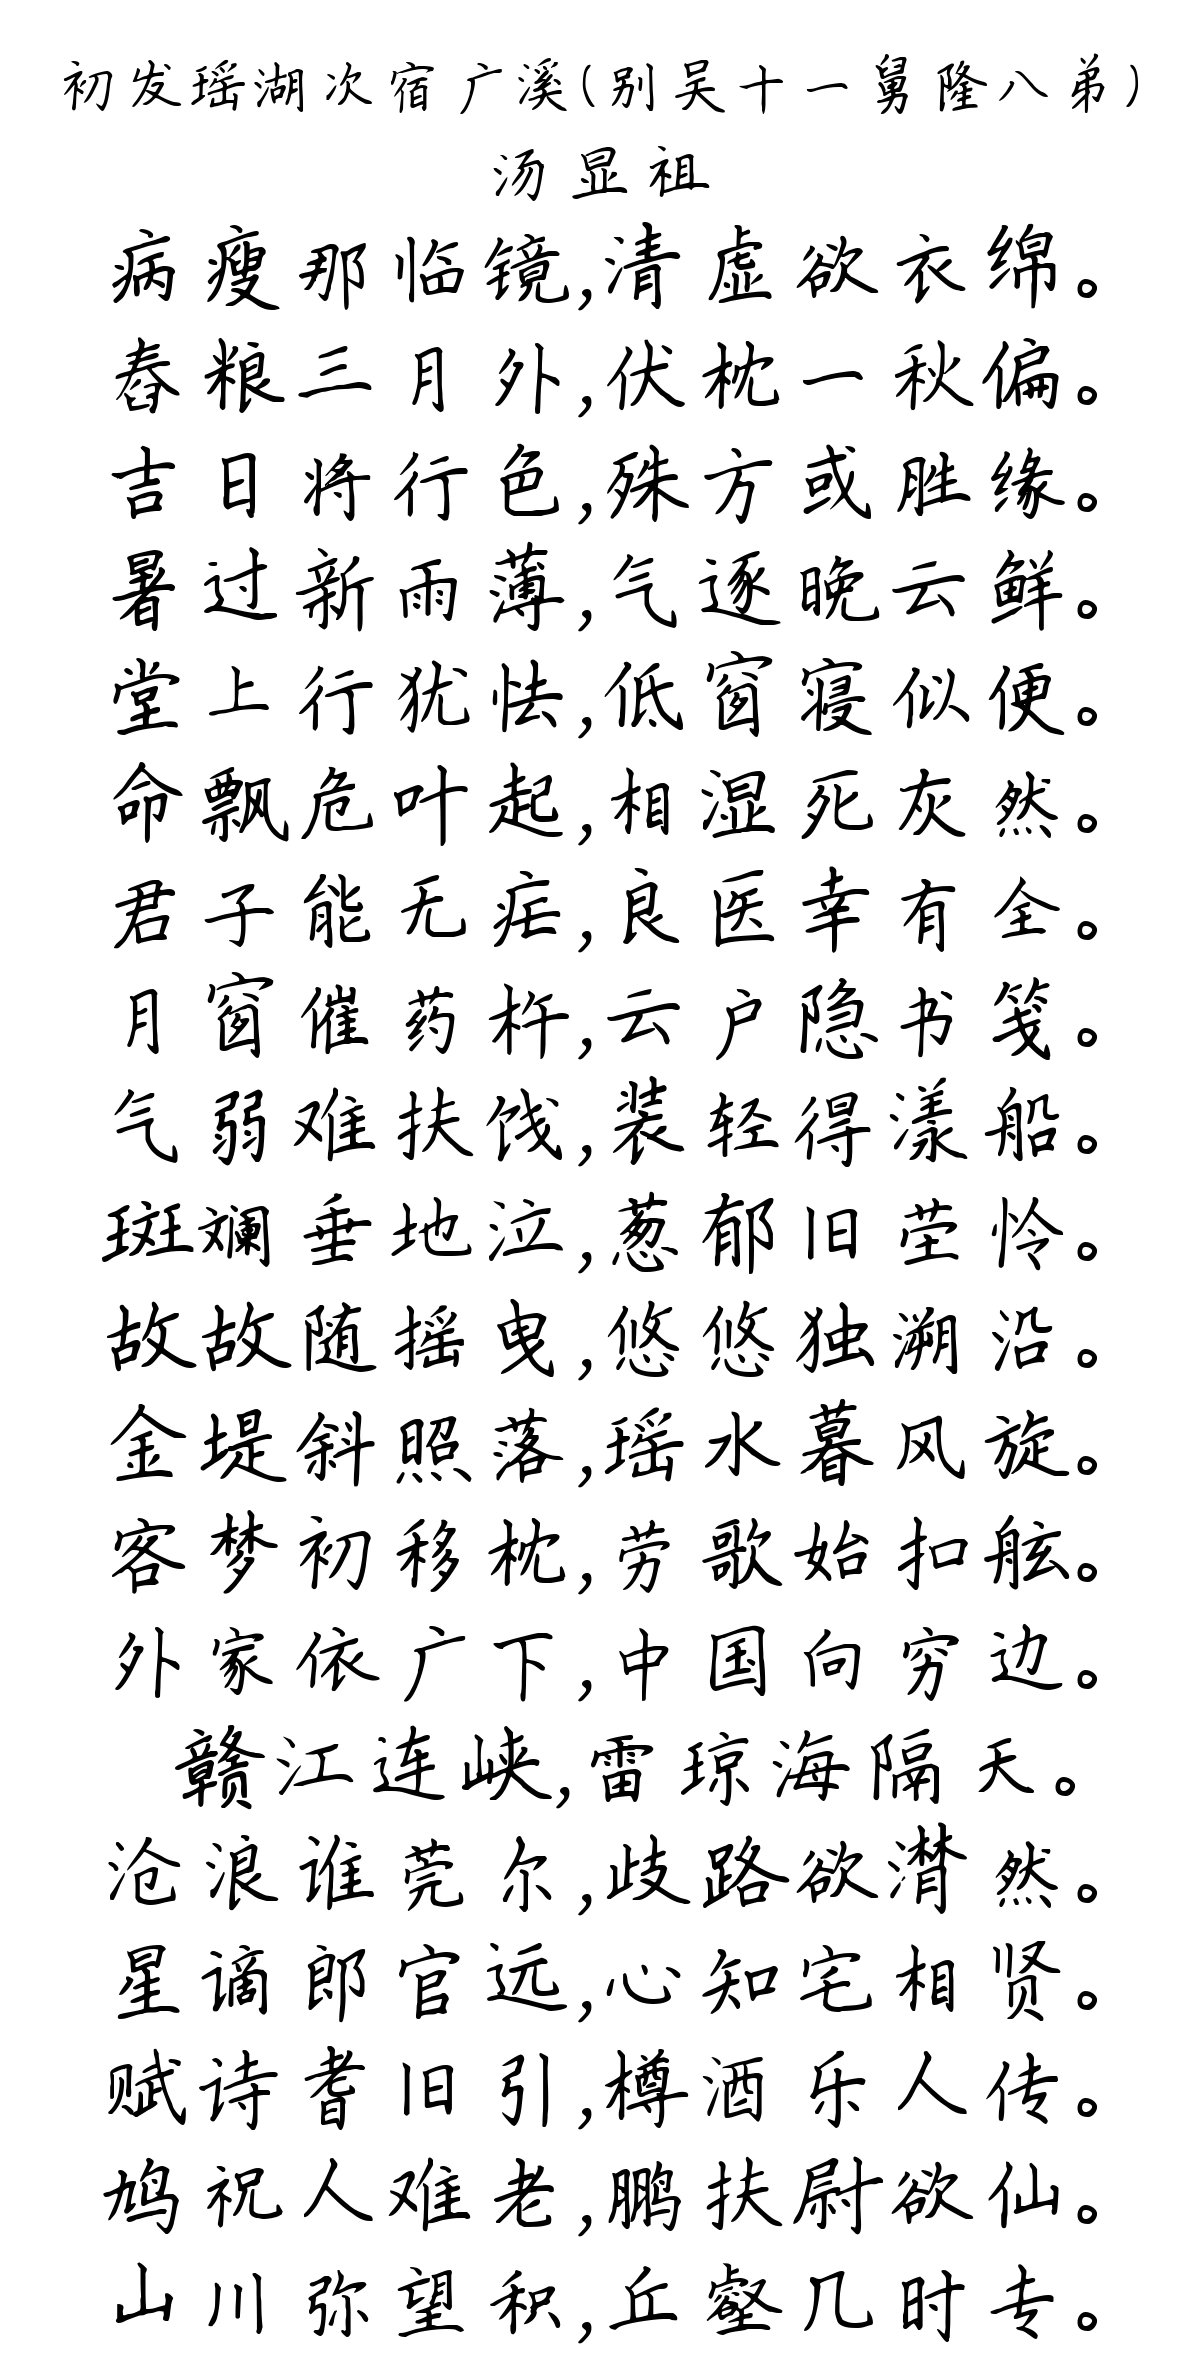 初发瑶湖次宿广溪(别吴十一舅隆八弟)
汤显祖
病瘦那临镜,清虚欲衣绵。
舂粮三月外,伏枕一秋偏。
吉日将行色,殊方或胜缘。
暑过新雨薄,气逐晚云鲜。
堂上行犹怯,低窗寝似便。
命飘危叶起,相湿死灰然。
君子能无疟,良医幸有全。
月窗催药杵,云户隐书笺。
气弱难扶饯,装轻得漾船。
斑斓垂地泣,葱郁旧茔怜。
故故随摇曳,悠悠独溯沿。
金堤斜照落,瑶水暮风旋。
客梦初移枕,劳歌始扣舷。
外家依广下,中国向穷边。
赣江连峡,雷琼海隔天。
沧浪谁莞尔,歧路欲潸然。
星谪郎官远,心知宅相贤。
赋诗耆旧引,樽酒乐人传。
鸠祝人难老,鹏扶尉欲仙。
山川弥望积,丘壑几时专。